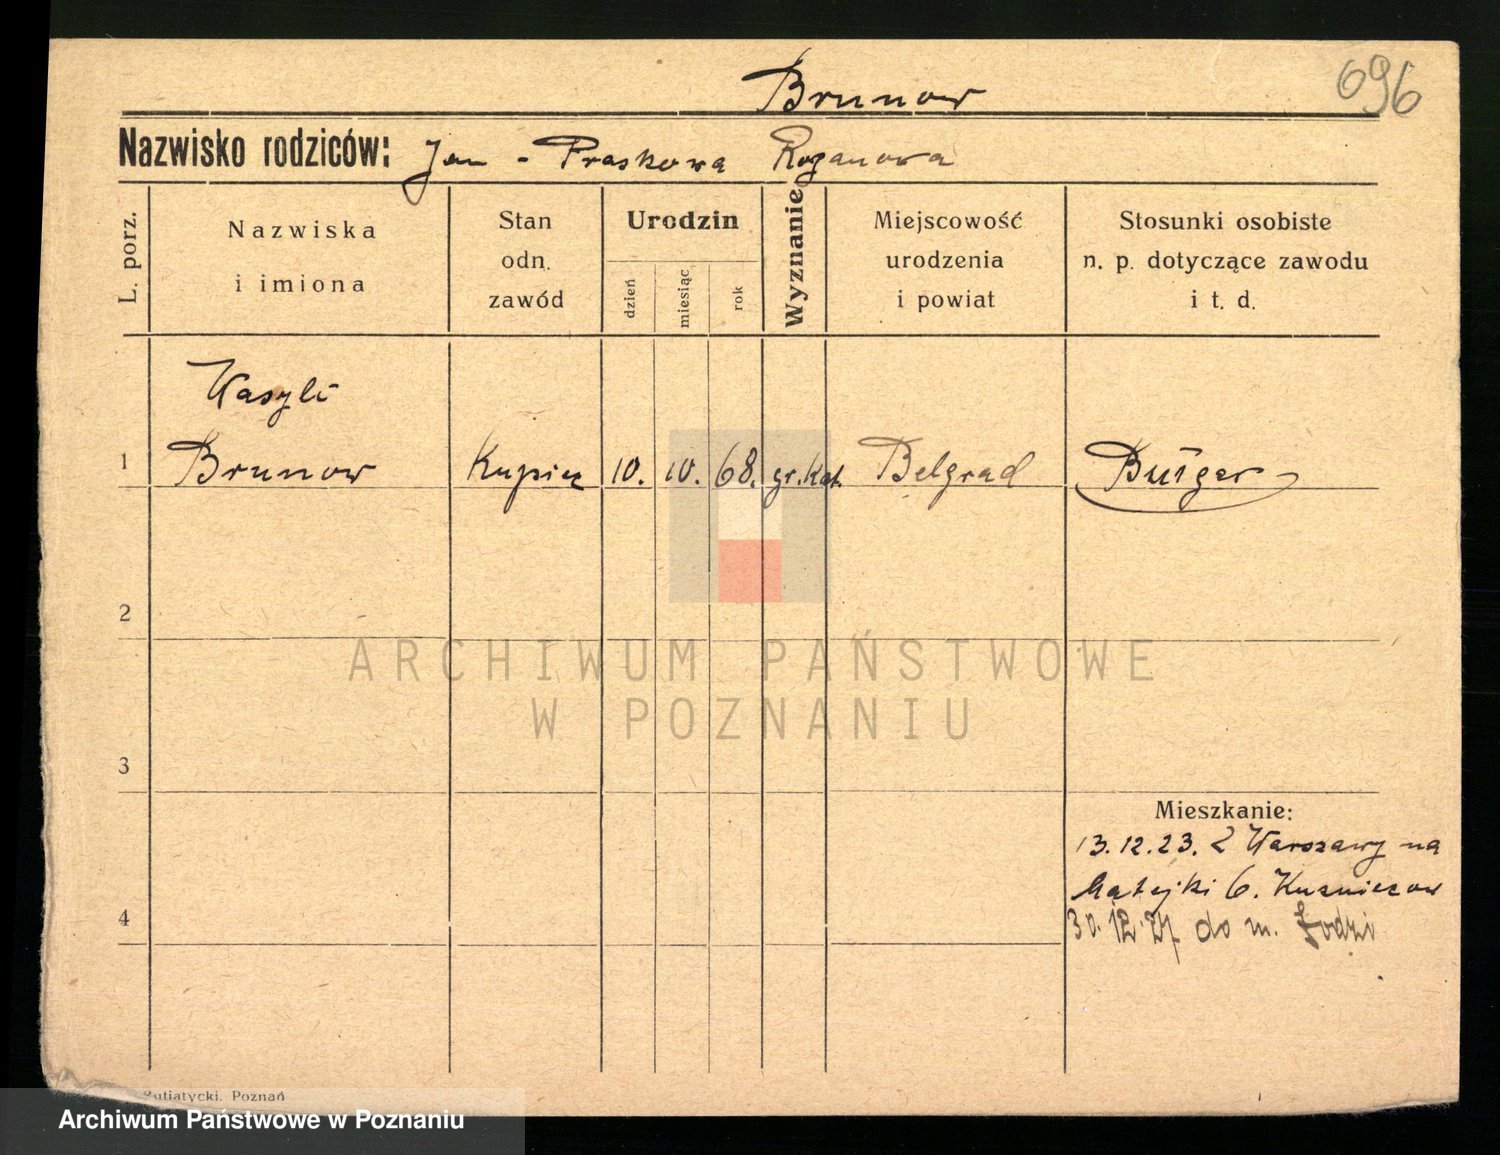 Brunow
096
Nazwisko rodziców: Jan - Praskowa Rozanowa
L. porz.
Nazwiska
i imiona
Stan
odn.
zawód
Urodzin
dzień
miesiąc
rok
Wyznanie
Miejscowość
urodzenia
i powiat
Stosunki osobiste
n. p. dotyczące zawodu
i t. d.
Wasyli
1 Brunow Kupiec 10. 10. 68. gr. Kat. Belgrad
2
3
4
Mieszkanie:
13.12.23. Z Warszawy na
Matejki 6. Kuzniecow
30.12. do m. Łodzi
ARCHIWUM PAŃSTWOWE
W POZNANIU
Putiatycki. Poznań
Archiwum Państwowe w Poznaniu